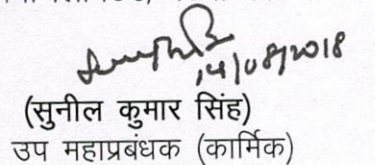 14/08/2018
(सुनील कुमार सिंह)
उप महाप्रबंधक (कार्मिक)